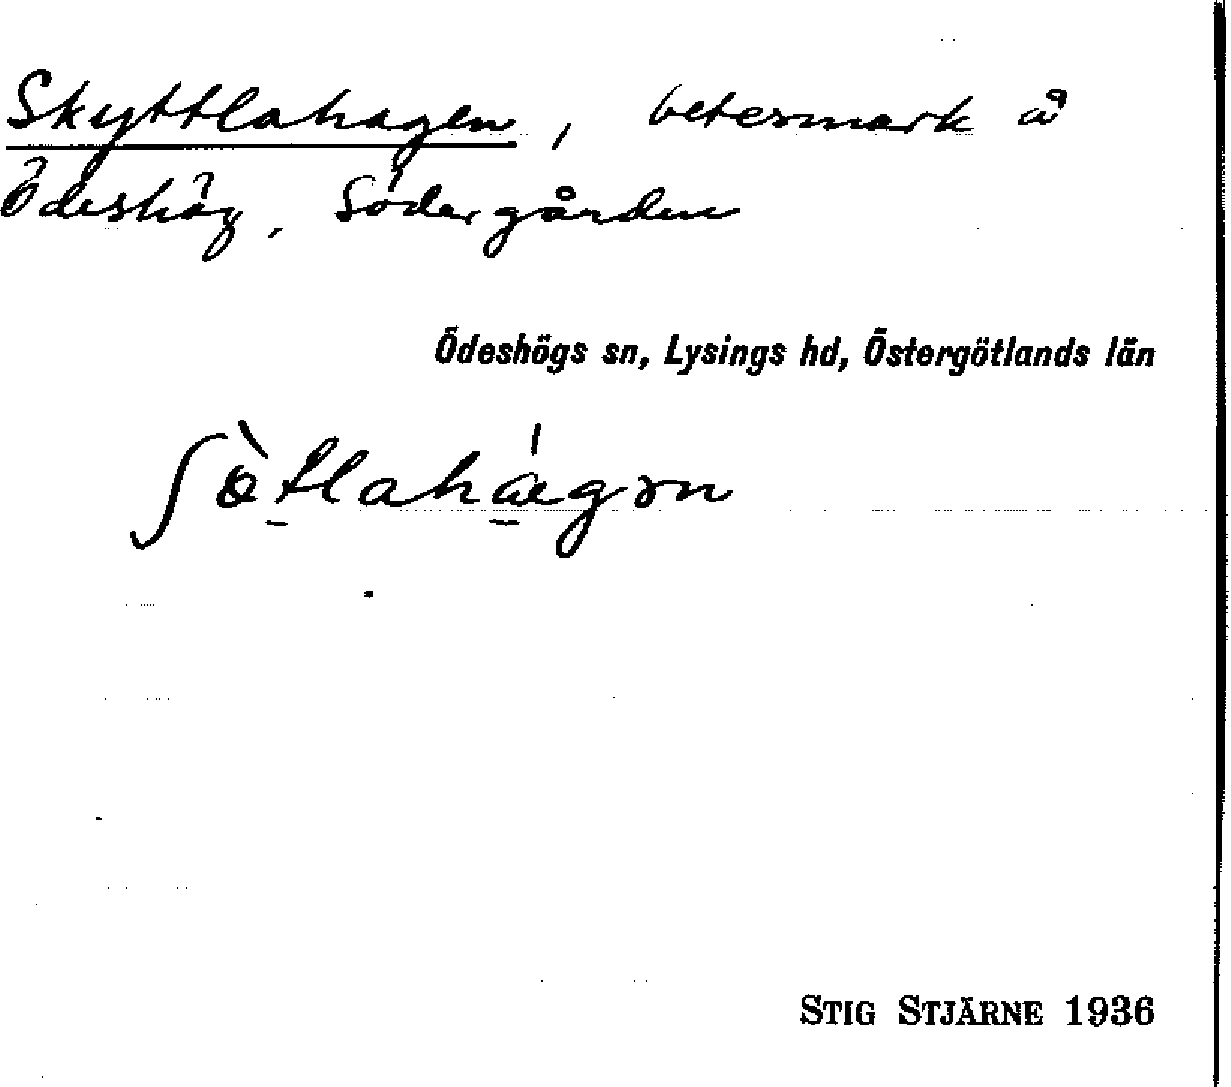 Skyttlahagen, betesmark å
Ödeshög, Södergården
Ödeshögs sn, Lysings hd, Östergötlands län
STIG STJÄRNE 1936